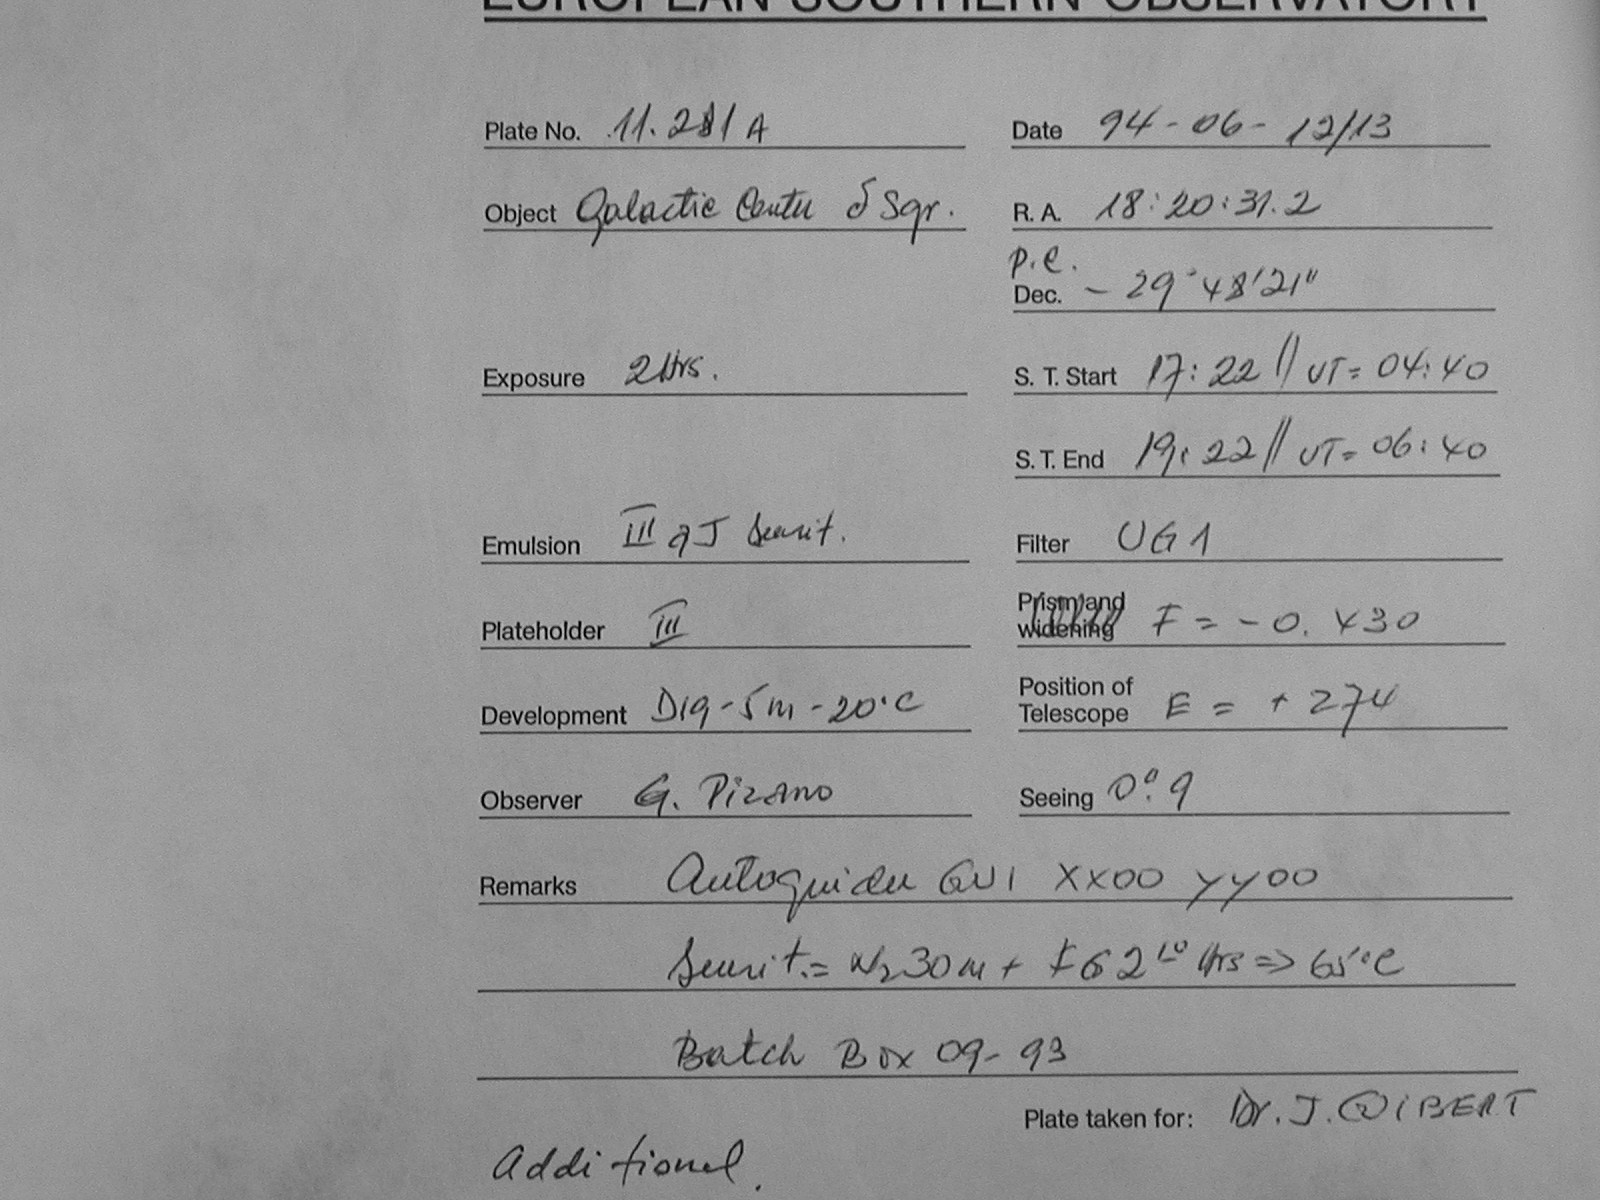 EUROPEAN SOUTHERN OBSERVATORY
Plate No. 11.281 A Date 94-06-12/13
Object Galactic Center δ Sgr. R. A. 18:20:31.2
p.e.
Dec. -29°48'21"
Exposure 2 Hrs. S. T. Start 17:22 // UT= 04:40
S. T. End 19:22 // UT= 06:40
Emulsion III aJ Sensit. Filter UG1
Plateholder III Prism and widening F = -0.430
Development D19-5m-20°C Position of Telescope E = +274
Observer G. Pizarro Seeing 0".9
Remarks Autoguider GU1 XX00 YY00
Sensit.= N2 30m + FG 2 Hrs => 65°C
Batch Box 09-93
Plate taken for: Dr. J. GUIBERT
Additional.